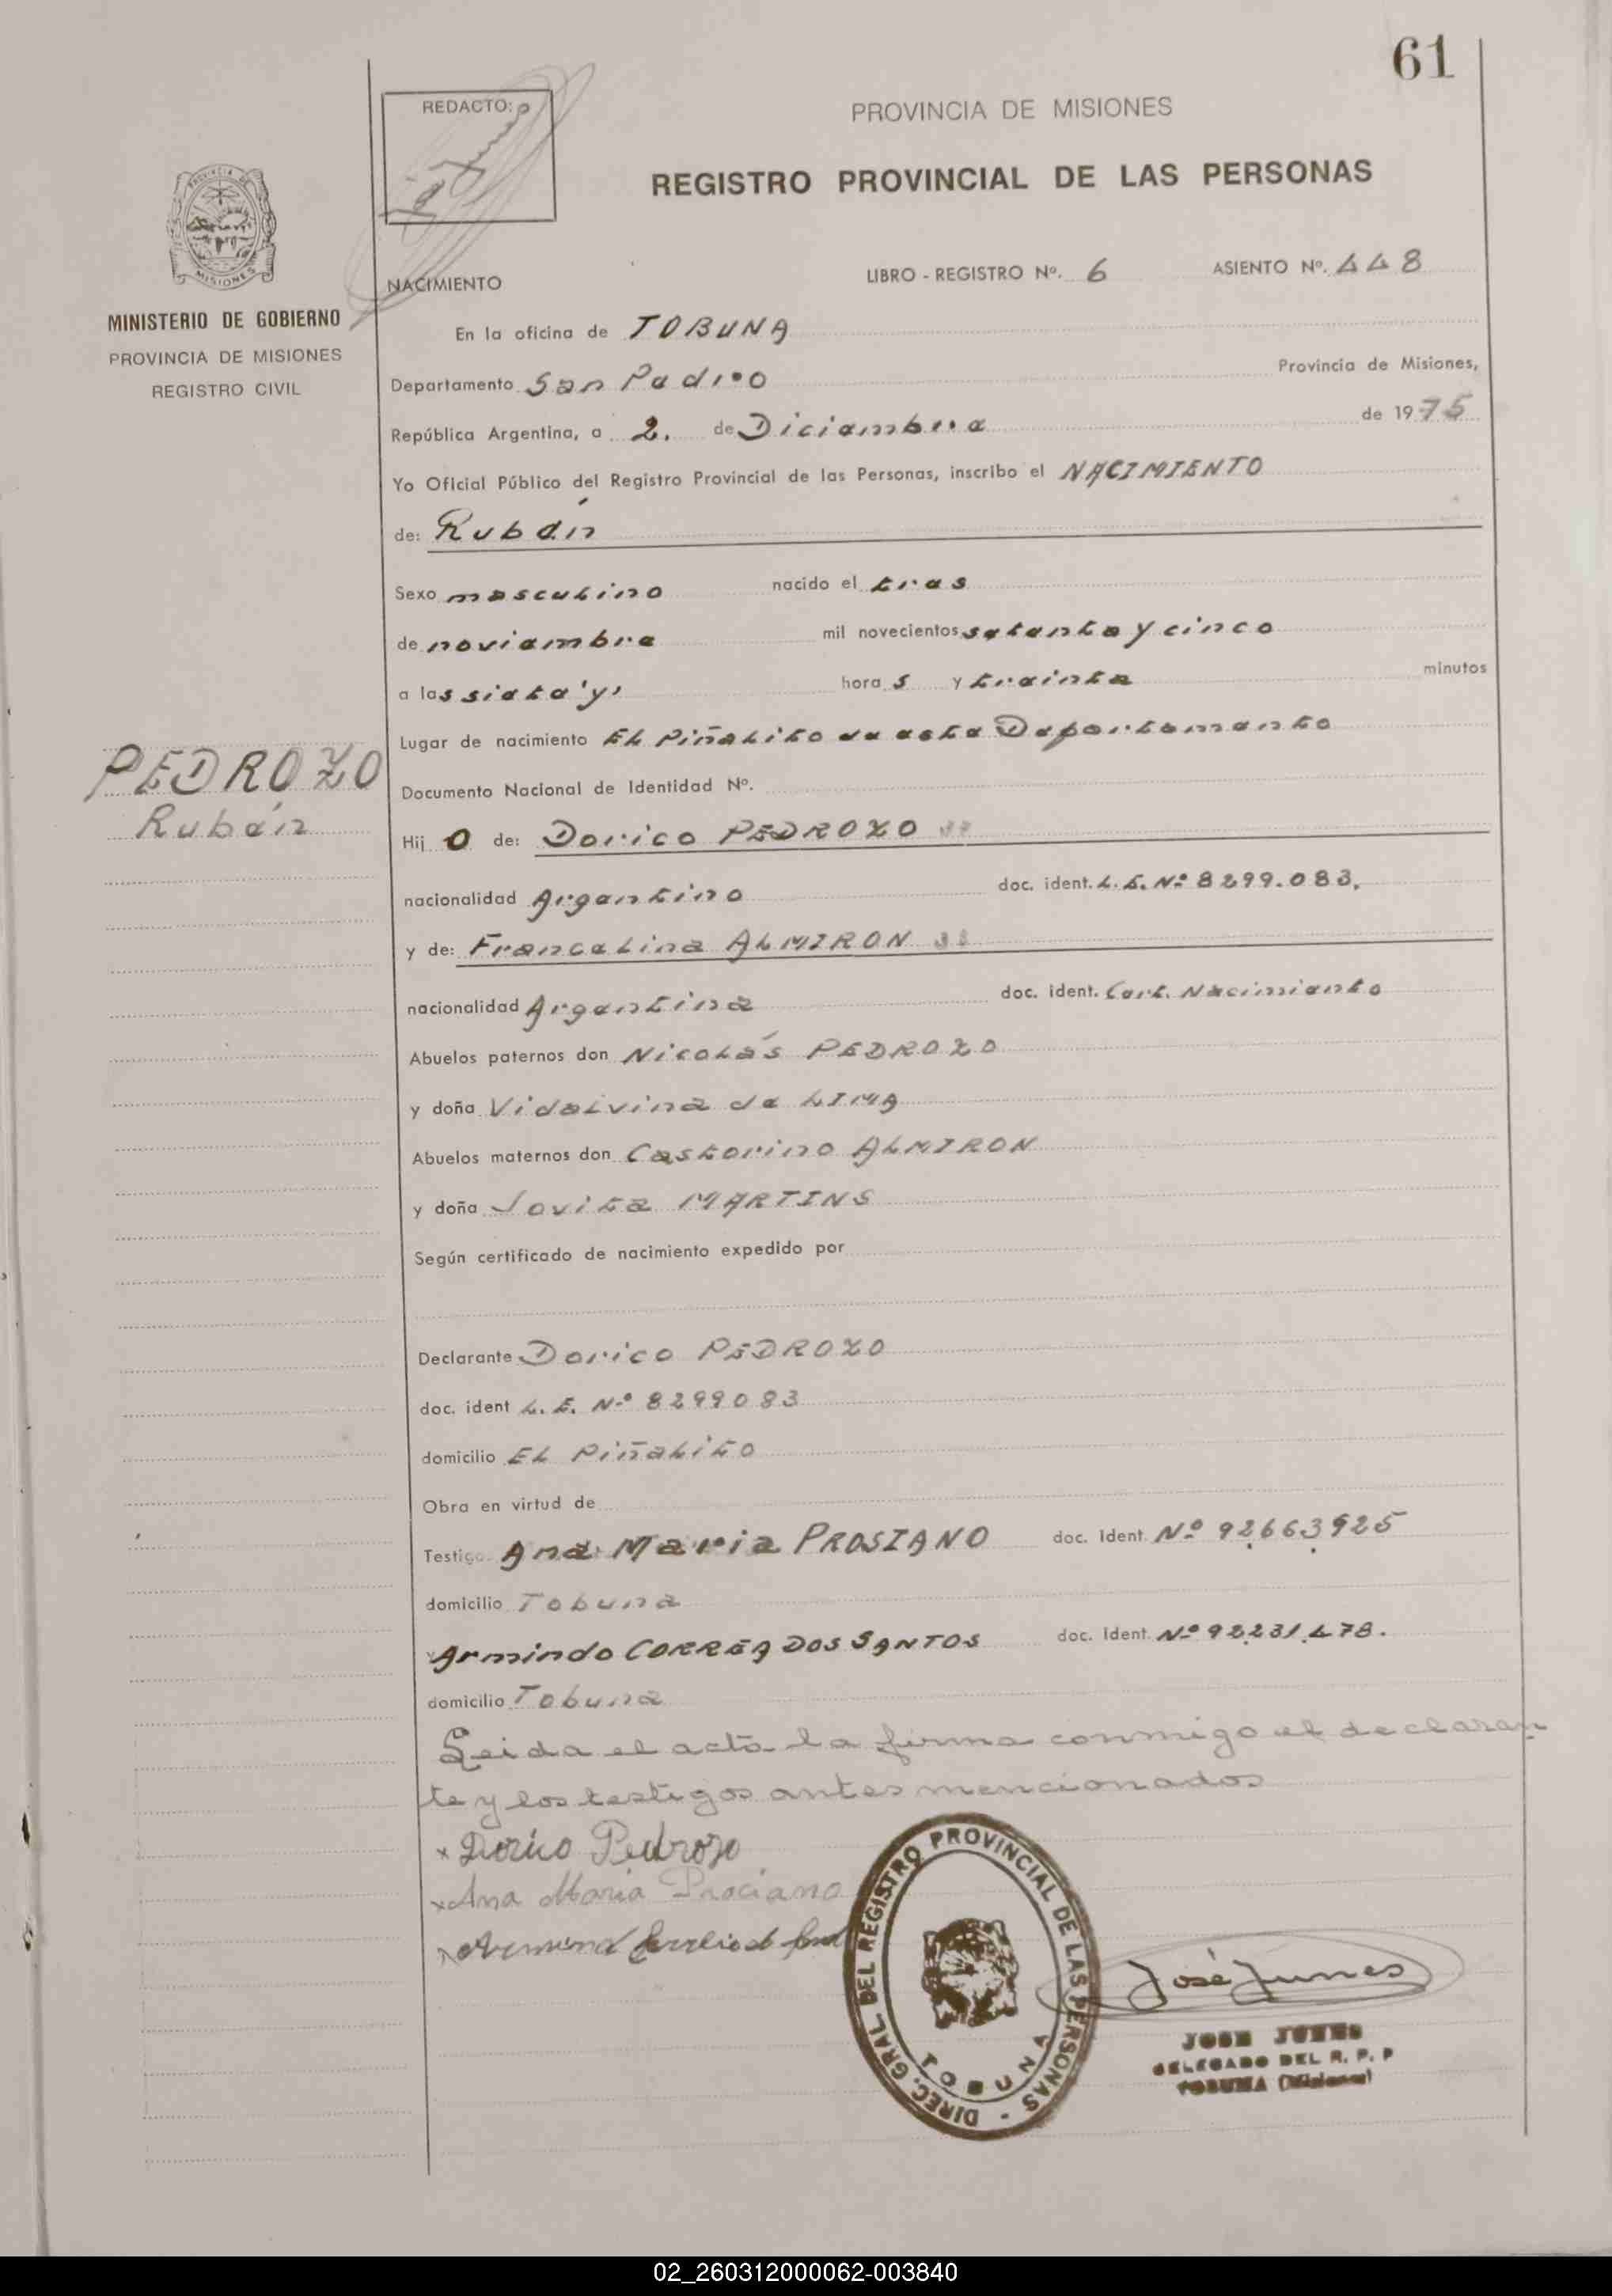 61
REDACTO:
PROVINCIA DE MISIONES
REGISTRO PROVINCIAL DE LAS PERSONAS
PROVINCIA DE
MISIONES
MINISTERIO DE GOBIERNO
PROVINCIA DE MISIONES
REGISTRO CIVIL
NACIMIENTO LIBRO - REGISTRO Nº. 6 ASIENTO Nº. 448
En la oficina de TOBUNA
Departamento San Pedro Provincia de Misiones,
República Argentina, a 2. de Diciembre de 1975
Yo Oficial Público del Registro Provincial de las Personas, inscribo el NACIMIENTO
de: Rubén
Sexo masculino nacido el tres
de noviembre mil novecientos setenta y cinco
a las siete y, hora s y treinta minutos
Lugar de nacimiento El Piñalito de este Departamento
PEDROZO
Rubén
Documento Nacional de Identidad Nº.
Hij o de: Dorico PEDROZO
nacionalidad Argentino doc. ident. L.E. Nº 8299.083.
y de: Francelina ALMIRON
nacionalidad Argentina doc. ident. Cert. Nacimiento
Abuelos paternos don Nicolás PEDROZO
y doña Vidalvina de LIMA
Abuelos maternos don Castorino ALMIRON
y doña Jovita MARTINS
Según certificado de nacimiento expedido por
Declarante Dorico PEDROZO
doc. ident L.E. Nº 8299083
domicilio El Piñalito
Obra en virtud de
Testigo Ana Maria PROSIANO doc. Ident. Nº 92663925
domicilio Tobuna
y Armindo CORREA DOS SANTOS doc. Ident. Nº 92.231.478.
domicilio Tobuna
Leida el acta la firma conmigo el declaran-
te y los testigos antes mencionados
x Dorico Pedrozo
x Ana Maria Prociano
DIREC. GRAL. DEL REGISTRO PROVINCIAL DE LAS PERSONAS -
TOBUNA
José Junes
JOSE JUNES
DELEGADO DEL R. P. P
TOBUNA (Misiones)
02_260312000062-003840